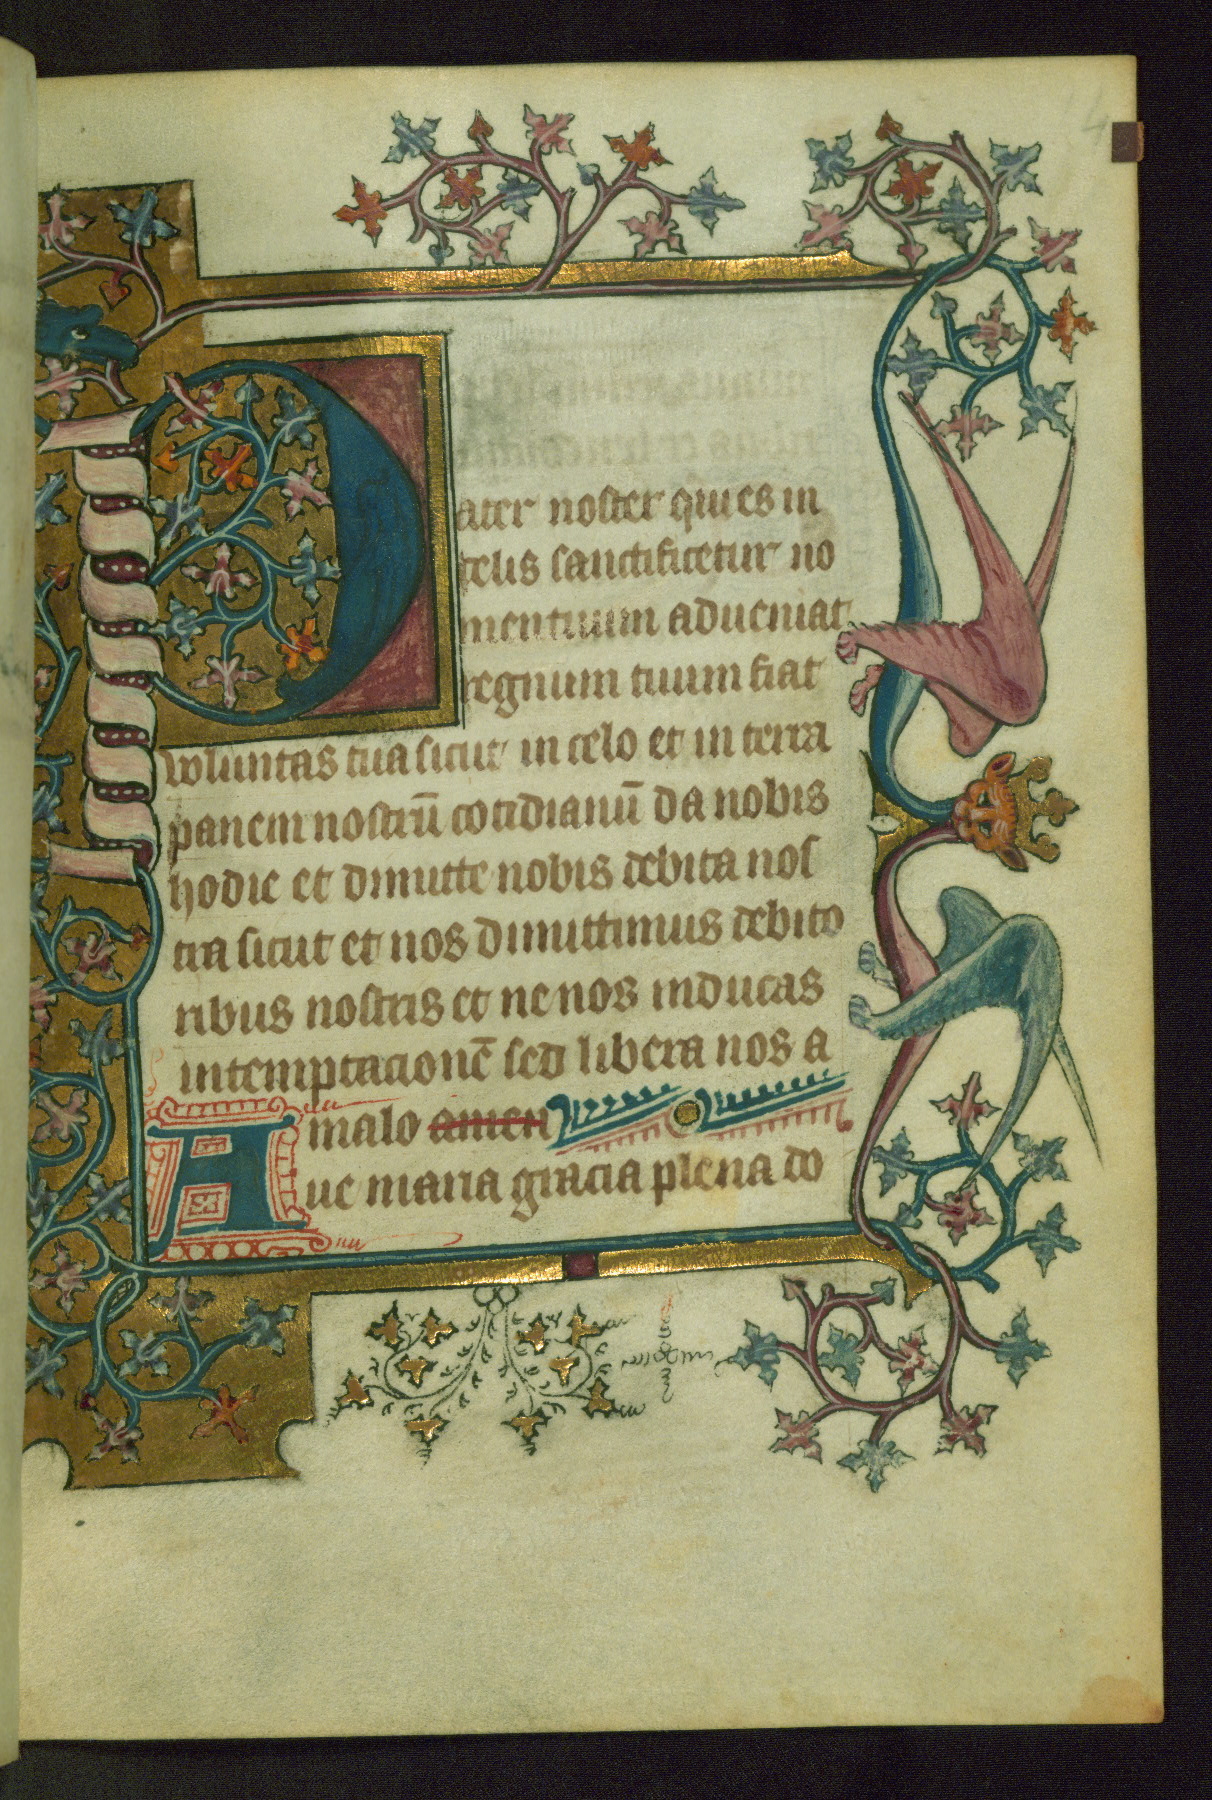 Pater noster qui es in
celis sanctificetur no
men tuum adueniat
regnum tuum fiat
uoluntas tua sicut in celo et in terra
panem nostrū cotidianū da nobis
hodie et dimitte nobis debita nos
tra sicut et nos dimittimus debito
ribus nostris et ne nos inducas
in temptacionē sed libera nos a
malo amen
Aue maria gracia plena do